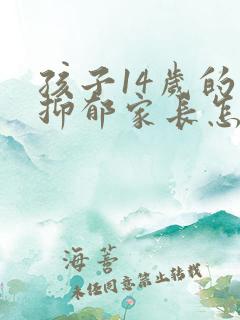 孩子14岁的
抑郁家长怎
海善
未经同意禁止转载